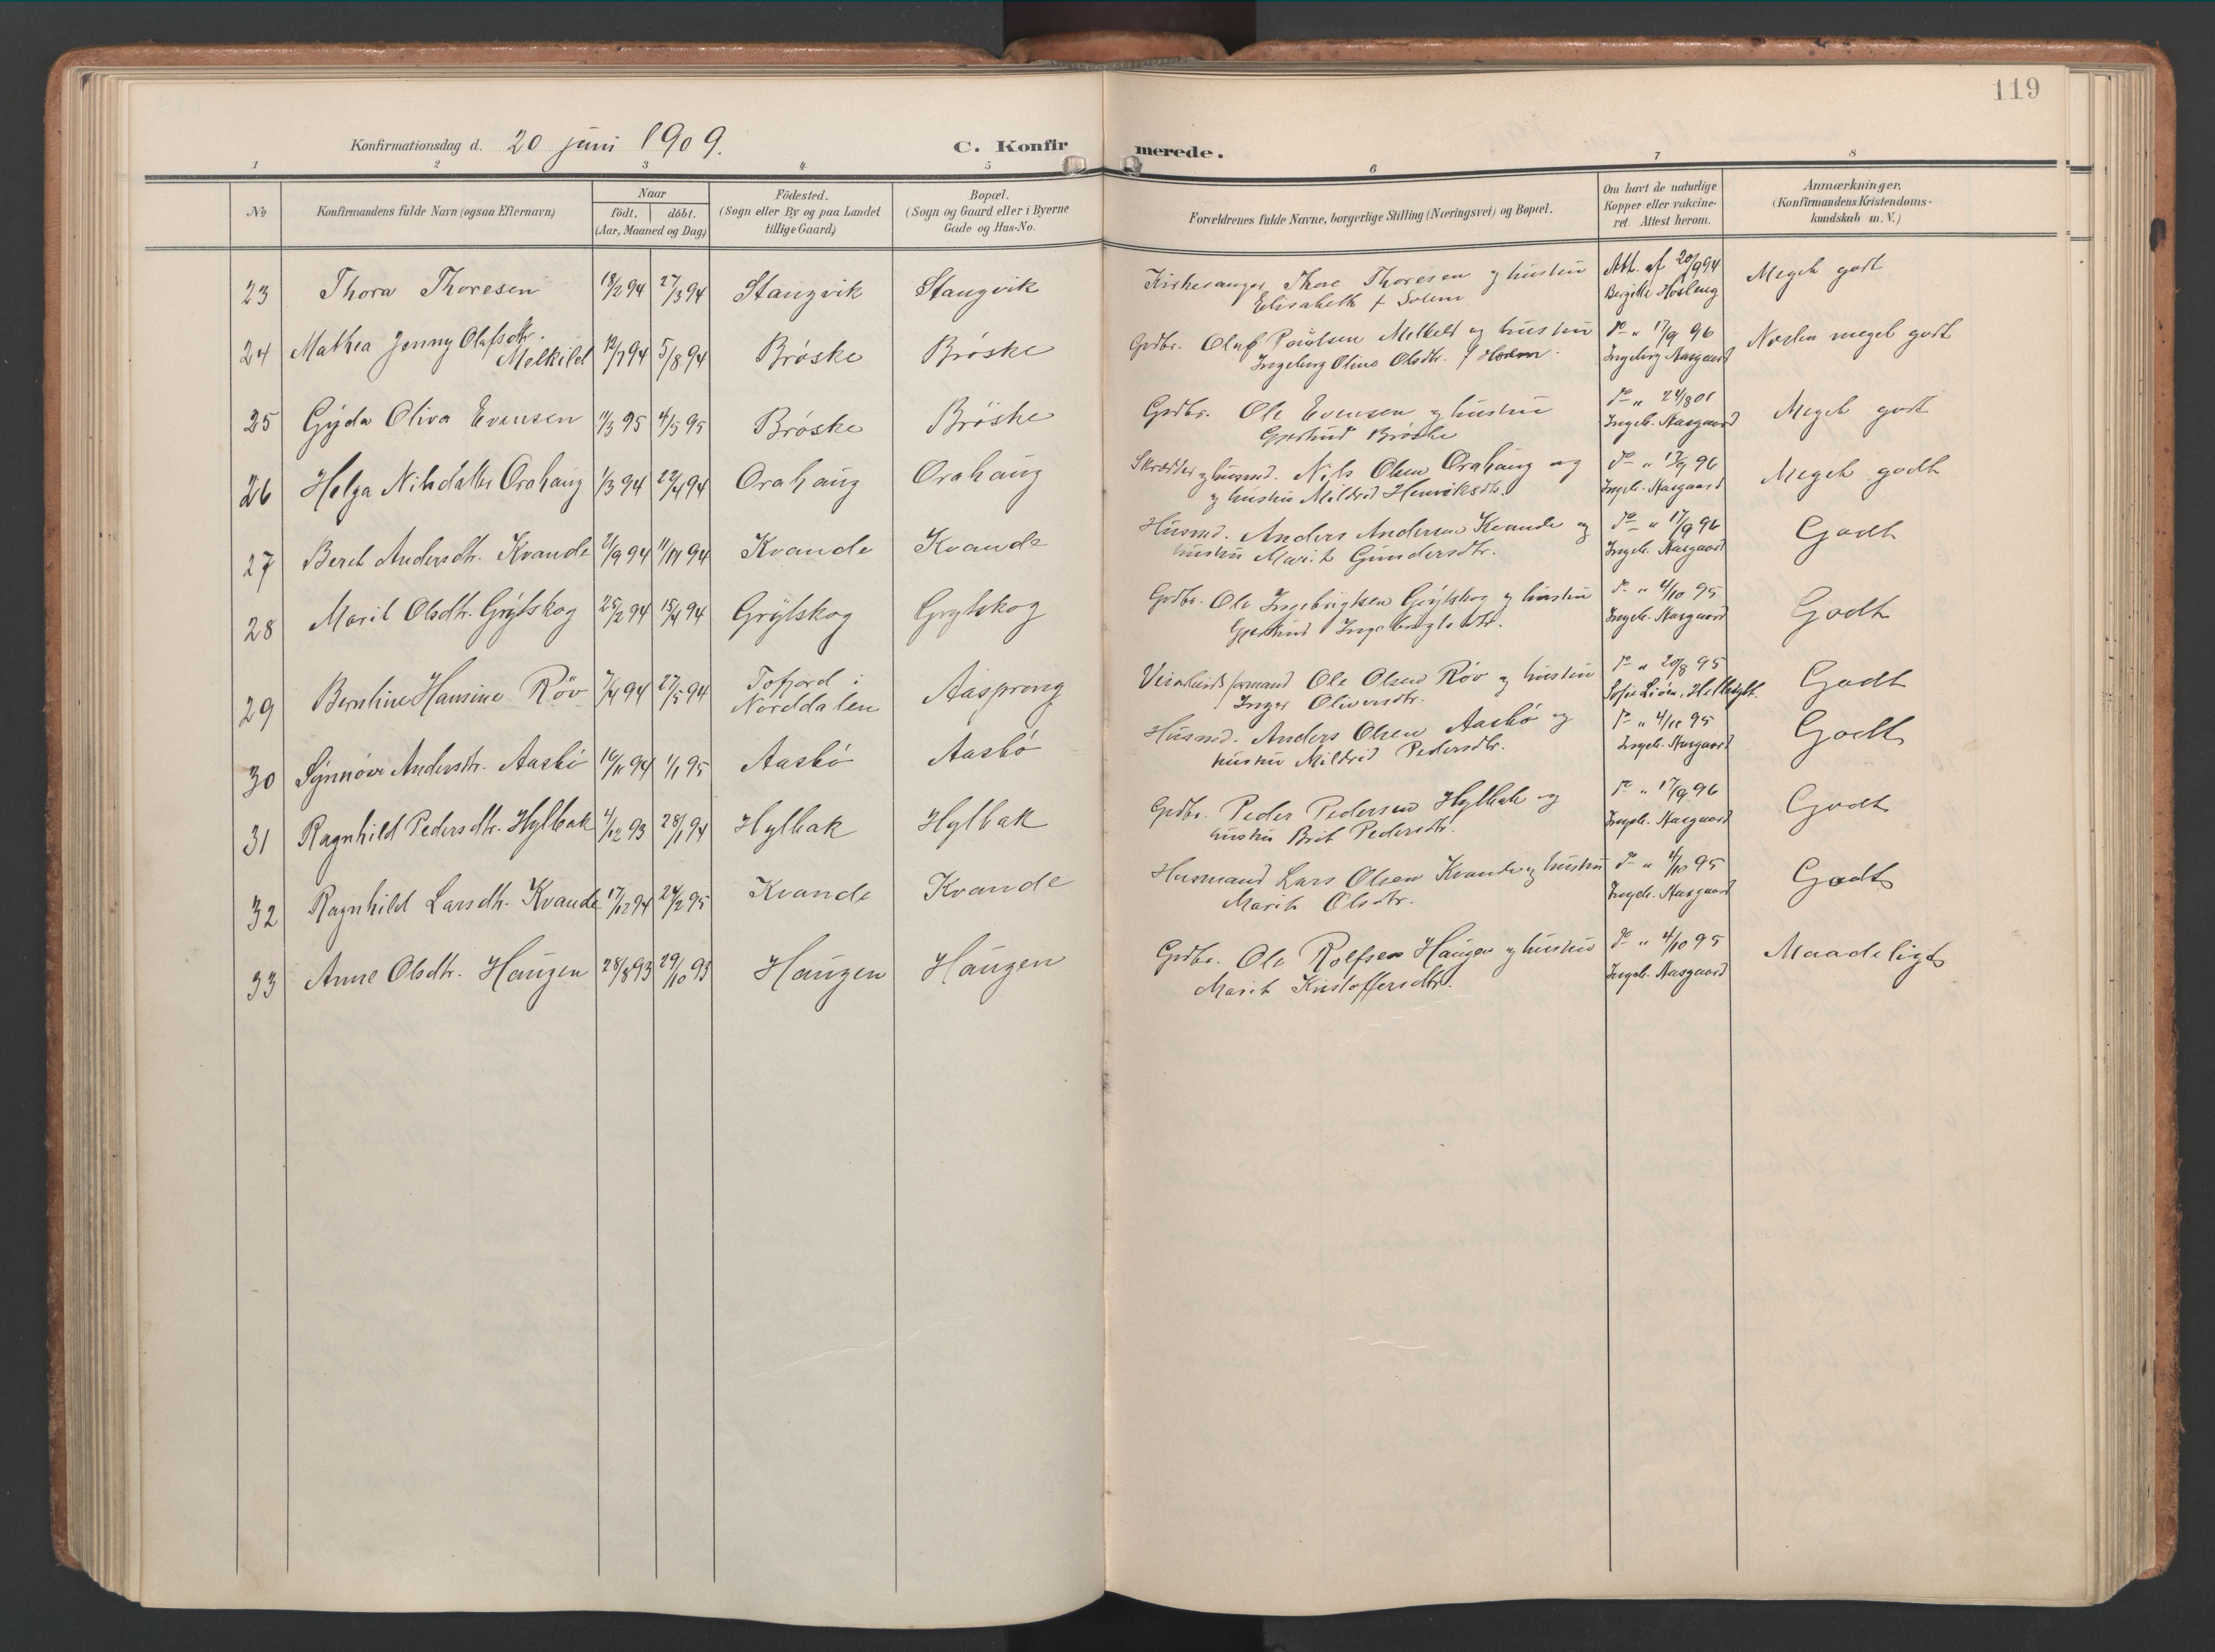 119
Konfirmationsdag d. 20 juni 1909.
C. Konfirmerede.
1 2 3 4 5 6 7 8
No
Konfirmandens fulde Navn (ogsaa Efternavn)
Naar
födt. döbt.
(Aar, Maaned og Dag)
Födested.
(Sogn eller By og paa Landet
tillige Gaard)
Bopæl.
(Sogn og Gaard eller i Byerne
Gade og Hus-No.
Forældrenes fulde Navne, borgerlige Stilling (Næringsvei) og Bopæl.
Om havt de naturlige
Kopper eller vakcine-
ret. Attest herom.
Anmærkninger.
(Konfirmandens Kristendoms-
kundskab m. V.)
23 Thora Thoresen 18/2 94 27/3 94 Stangvik Stangvik Kirkesanger Thore Thoresen og hustru Att. af 20/9 94 Meget godt
Elisabeth f Solem Bergitte
24 Mathea Jenny Olafsdtr. 12/7 94 5/8 94 Bröske Bröske Grdbr. Olaf Melkild og hustru do " 17/9 96 Nesten meget godt
Melkild Ingeborg Olina Olsdtr. f Ingeborg Aasgaard
25 Gyda Oliva Evensen 11/3 95 4/5 95 Bröske Bröske Grdbr. Ole Evensen og hustru do " 24/8 01 Meget godt
Gjertrud Bröske Ingeb. Aasgaard
26 Helga Nilsdatter Orahaug 1/3 94 22/4 94 Orahaug Orahaug Skrædder og husmd. Nils Olsen Orahaug og do " 17/9 96 Meget godt
og hustru Mildrid Henriksdtr. Ingeb. Aasgaard
27 Beret Andersdtr. Kvande 21/9 94 11/11 94 Kvande Kvande Husmd. Anders Andersen Kvande og do " 17/9 96 Godt
hustru Marit Gundersdtr. Ingeb. Aasgaard
28 Marit Olsdtr. Grytskog 25/2 94 15/4 94 Grytskog Grytskog Grdbr. Ole Ingebrigtsen Grytskog og hustru do " 4/10 95 Godt
Gjertrud Ingebrigtsdtr. Ingeb. Aasgaard
29 Berntine Hansine Röv 7/4 94 27/5 94 Tafjord i Aasprong Ole Olsen Röv og hustru do " 20/8 95 Godt
Norddalen Inger Oliversdtr. Sofie Liöen, Hellesylt.
30 Synnöve Andersdtr. Aasbö 10/11 94 1/1 95 Aasbö Aasbö Husmd. Anders Olsen Aasbö og do " 4/10 95 Godt
hustru Mildrid Pedersdtr. Ingeb. Aasgaard
31 Ragnhild Pedersdtr. Hylbak 4/12 93 28/1 94 Hylbak Hylbak Grdbr. Peder Pedersen Hylbak og do " 17/9 96 Godt
hustru Brit Pedersdtr. Ingeb. Aasgaard
32 Ragnhild Larsdtr. Kvande 17/12 94 24/2 95 Kvande Kvande Husmand Lars Olsen Kvande og hustru do " 4/10 95 Godt
Marit Olsdtr. Ingeb. Aasgaard
33 Anne Olsdtr. Haugen 28/8 93 29/10 93 Haugen Haugen Grdbr. Ole Rolfsen Haugen og hustru do " 4/10 95 Maadeligt
Marit Kristoffersdtr. Ingeb. Aasgaard